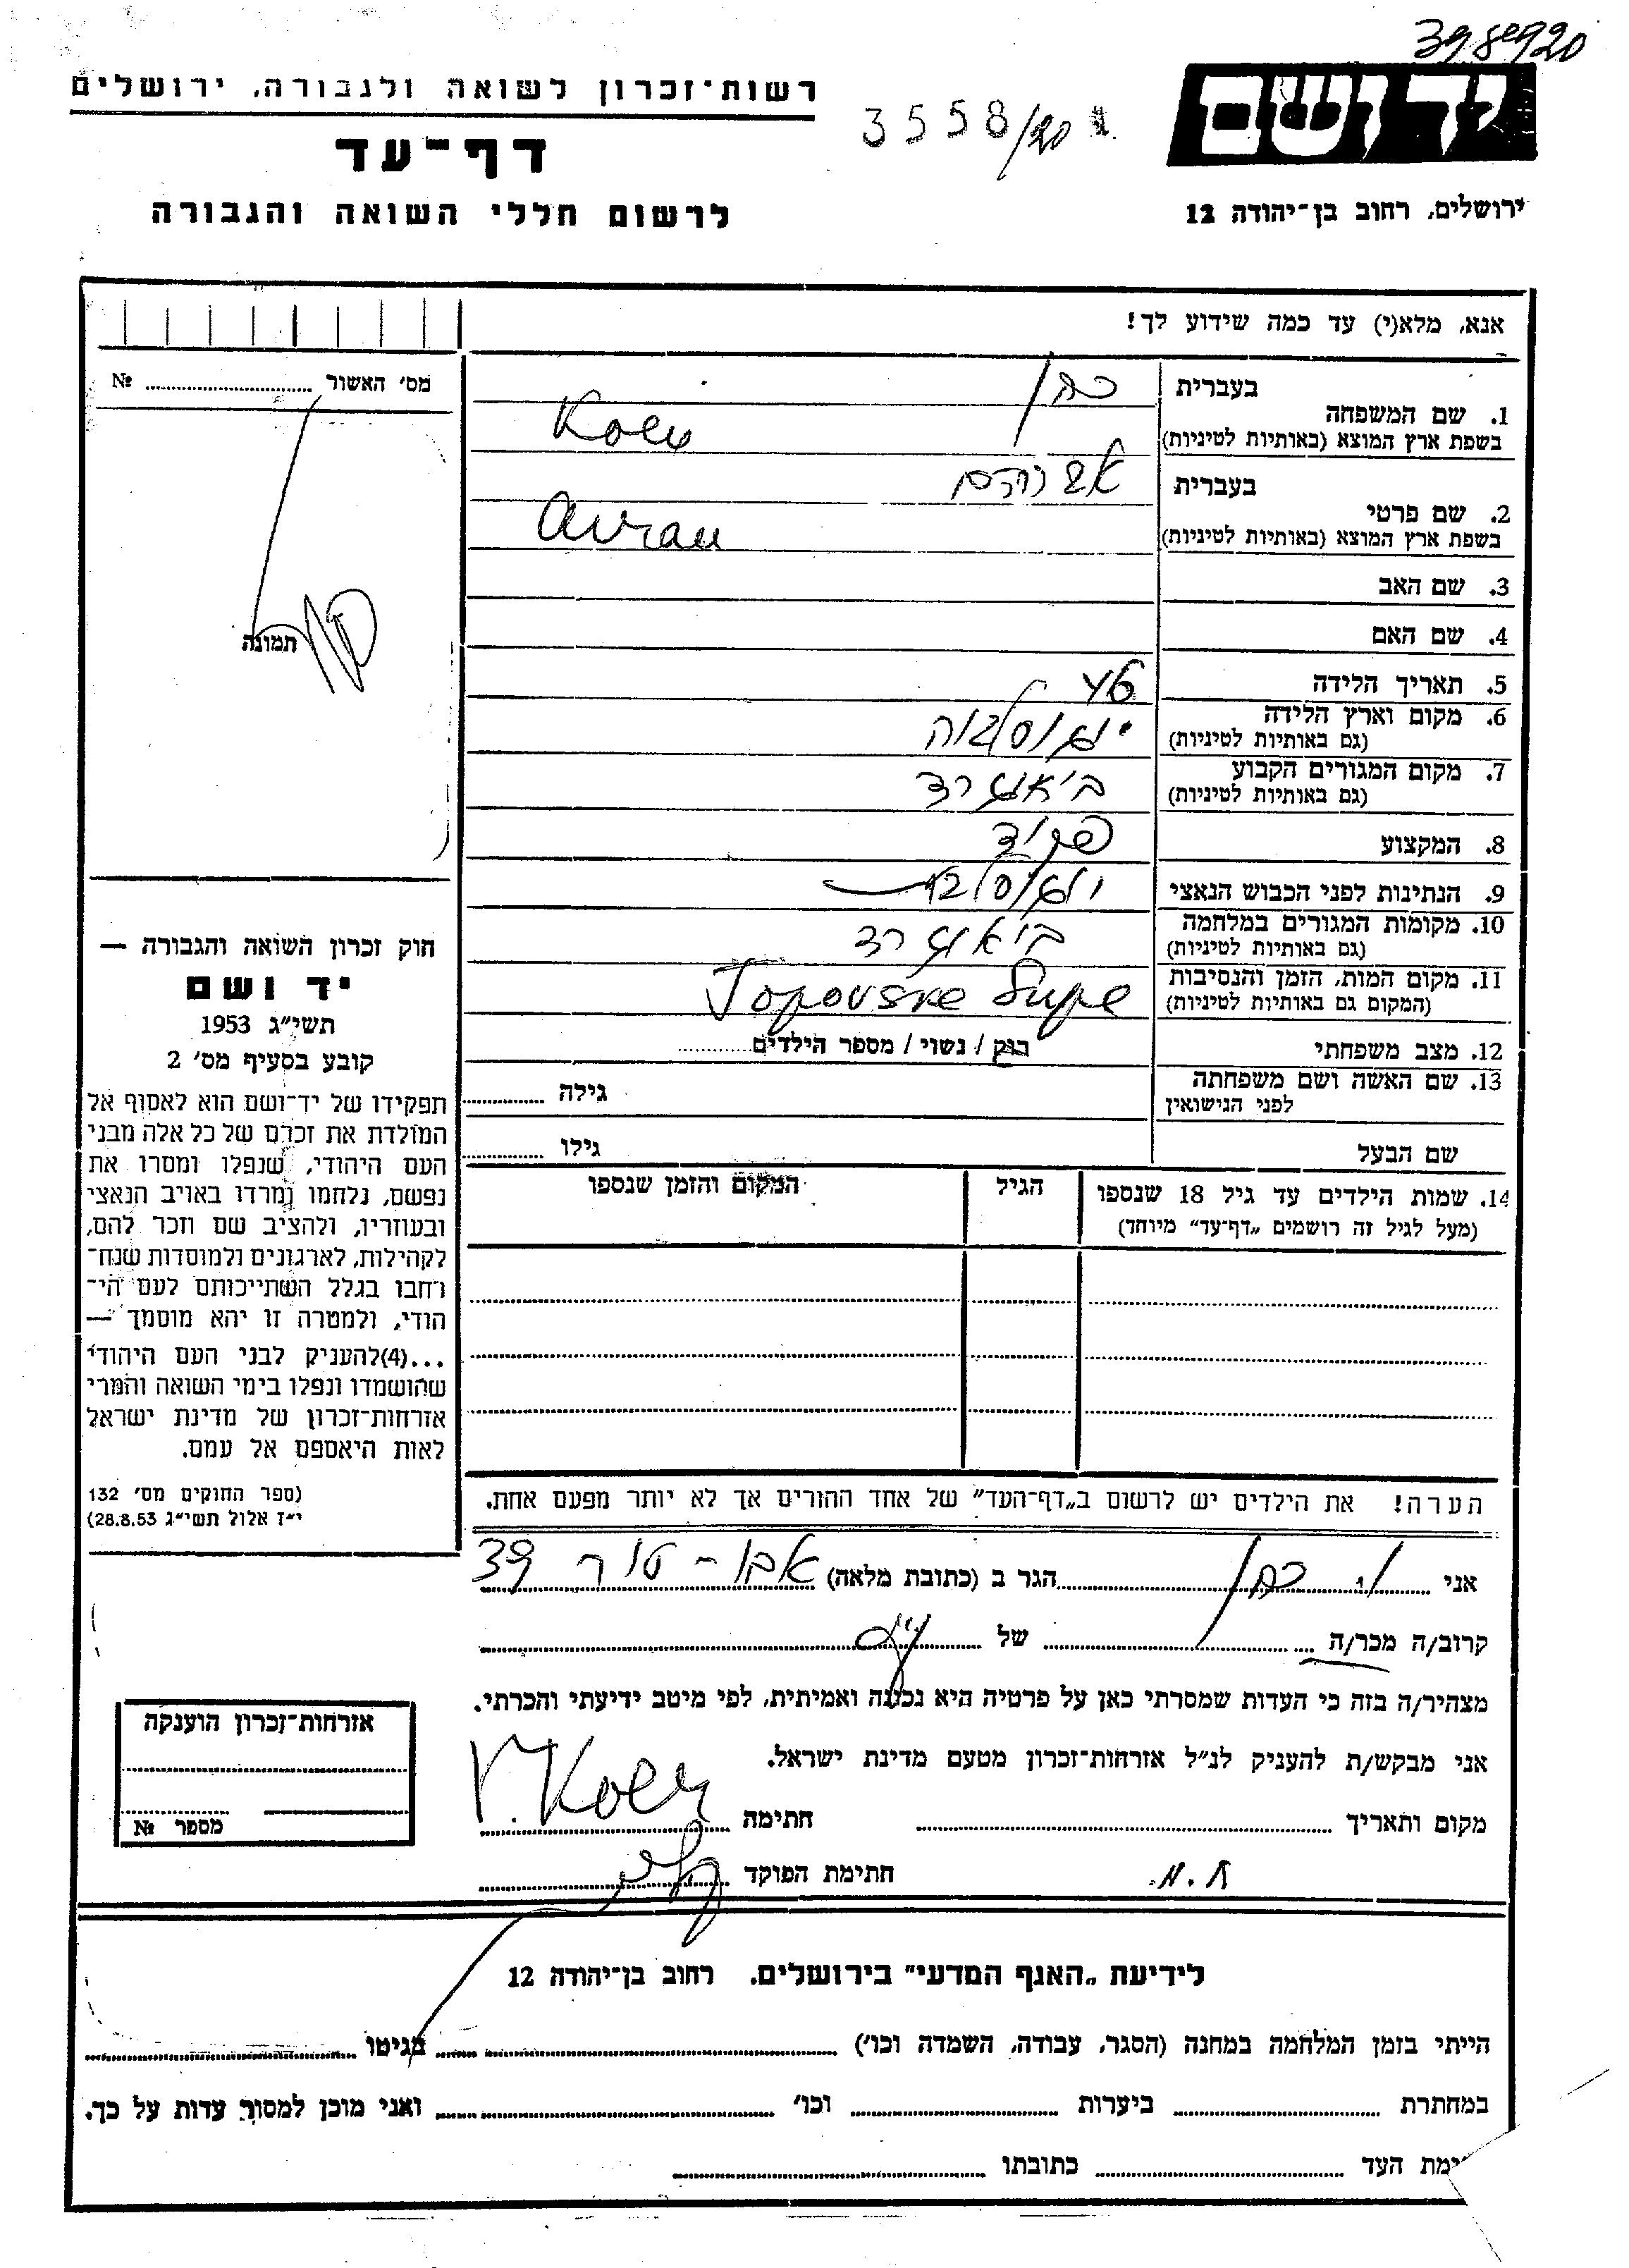 398920
ידושם
רשות־זכרון לשואה ולגבורה, ירושלים
3558/20
דף־עד
ירושלים, רחוב בן־יהודה 12
לרשום חללי השואה והגבורה
אנא, מלא(י) עד כמה שידוע לך!
מס׳ האשור ........ №
תמונה
בעברית כהן
1. שם המשפחה
בשפת ארץ המוצא (באותיות לטיניות) Koen
בעברית אברהם
2. שם פרטי
בשפת ארץ המוצא (באותיות לטיניות) Avram
3. שם האב
4. שם האם
5. תאריך הלידה
6. מקום וארץ הלידה יוגוסלביה
(גם באותיות לטיניות)
7. מקום המגורים הקבוע ביאוגרד
(גם באותיות לטיניות)
8. המקצוע פקיד
9. הנתינות לפני הכבוש הנאצי יוגוסלבית
10. מקומות המגורים במלחמה ביאוגרד
(גם באותיות לטיניות)
11. מקום המות, הזמן והנסיבות Topovske Šupe
(המקום גם באותיות לטיניות)
12. מצב משפחתי רוק / נשוי / מספר הילדים........
13. שם האשה ושם משפחתה גילה ........
לפני הנישואין
שם הבעל גילו ........
14. שמות הילדים עד גיל 18 שנספו הגיל המקום והזמן שנספו
(מעל לגיל זה רושמים „דף־עד” מיוחד)
הערה! את הילדים יש לרשום ב„דף־העד” של אחד ההורים אך לא יותר מפעם אחת.
חוק זכרון השואה והגבורה —
יד ושם
תשי״ג 1953
קובע בסעיף מס׳ 2
תפקידו של יד־ושם הוא לאסוף אל
המולדת את זכרם של כל אלה מבני
העם היהודי, שנפלו ומסרו את
נפשם, נלחמו ומרדו באויב הנאצי
ובעוזריו, ולהציב שם וזכר להם,
לקהילות, לארגונים ולמוסדות שנח־
רחבו בגלל השתייכותם לעם הי־
הודי, ולמטרה זו יהא מוסמך —
...(4)להעניק לבני העם היהודי
שהושמדו ונפלו בימי השואה והמרי
אזרחות־זכרון של מדינת ישראל
לאות היאספם אל עמם.
(ספר החוקים מס׳ 132
י״ז אלול תשי״ג 28.8.53)
אני כהן הגר ב (כתובת מלאה) אבו - טור 39
קרוב/ה מכר/ה ........ של ........
מצהיר/ה בזה כי העדות שמסרתי כאן על פרטיה היא נכונה ואמיתית, לפי מיטב ידיעתי והכרתי.
אני מבקש/ת להעניק לנ״ל אזרחות־זכרון מטעם מדינת ישראל.
מקום ותאריך ........ חתימה Koen
חתימת הפוקד
אזרחות־זכרון הוענקה
מספר №
לידיעת „האגף המדעי” בירושלים. רחוב בן־יהודה 12
הייתי בזמן המלחמה במחנה (הסגר, עבודה, השמדה וכו׳) ........ בגיטו ........
במחתרת ........ ביערות ........ וכו׳ ........ ואני מוכן למסור עדות על כך.
ימת העד ........ כתובתו ........